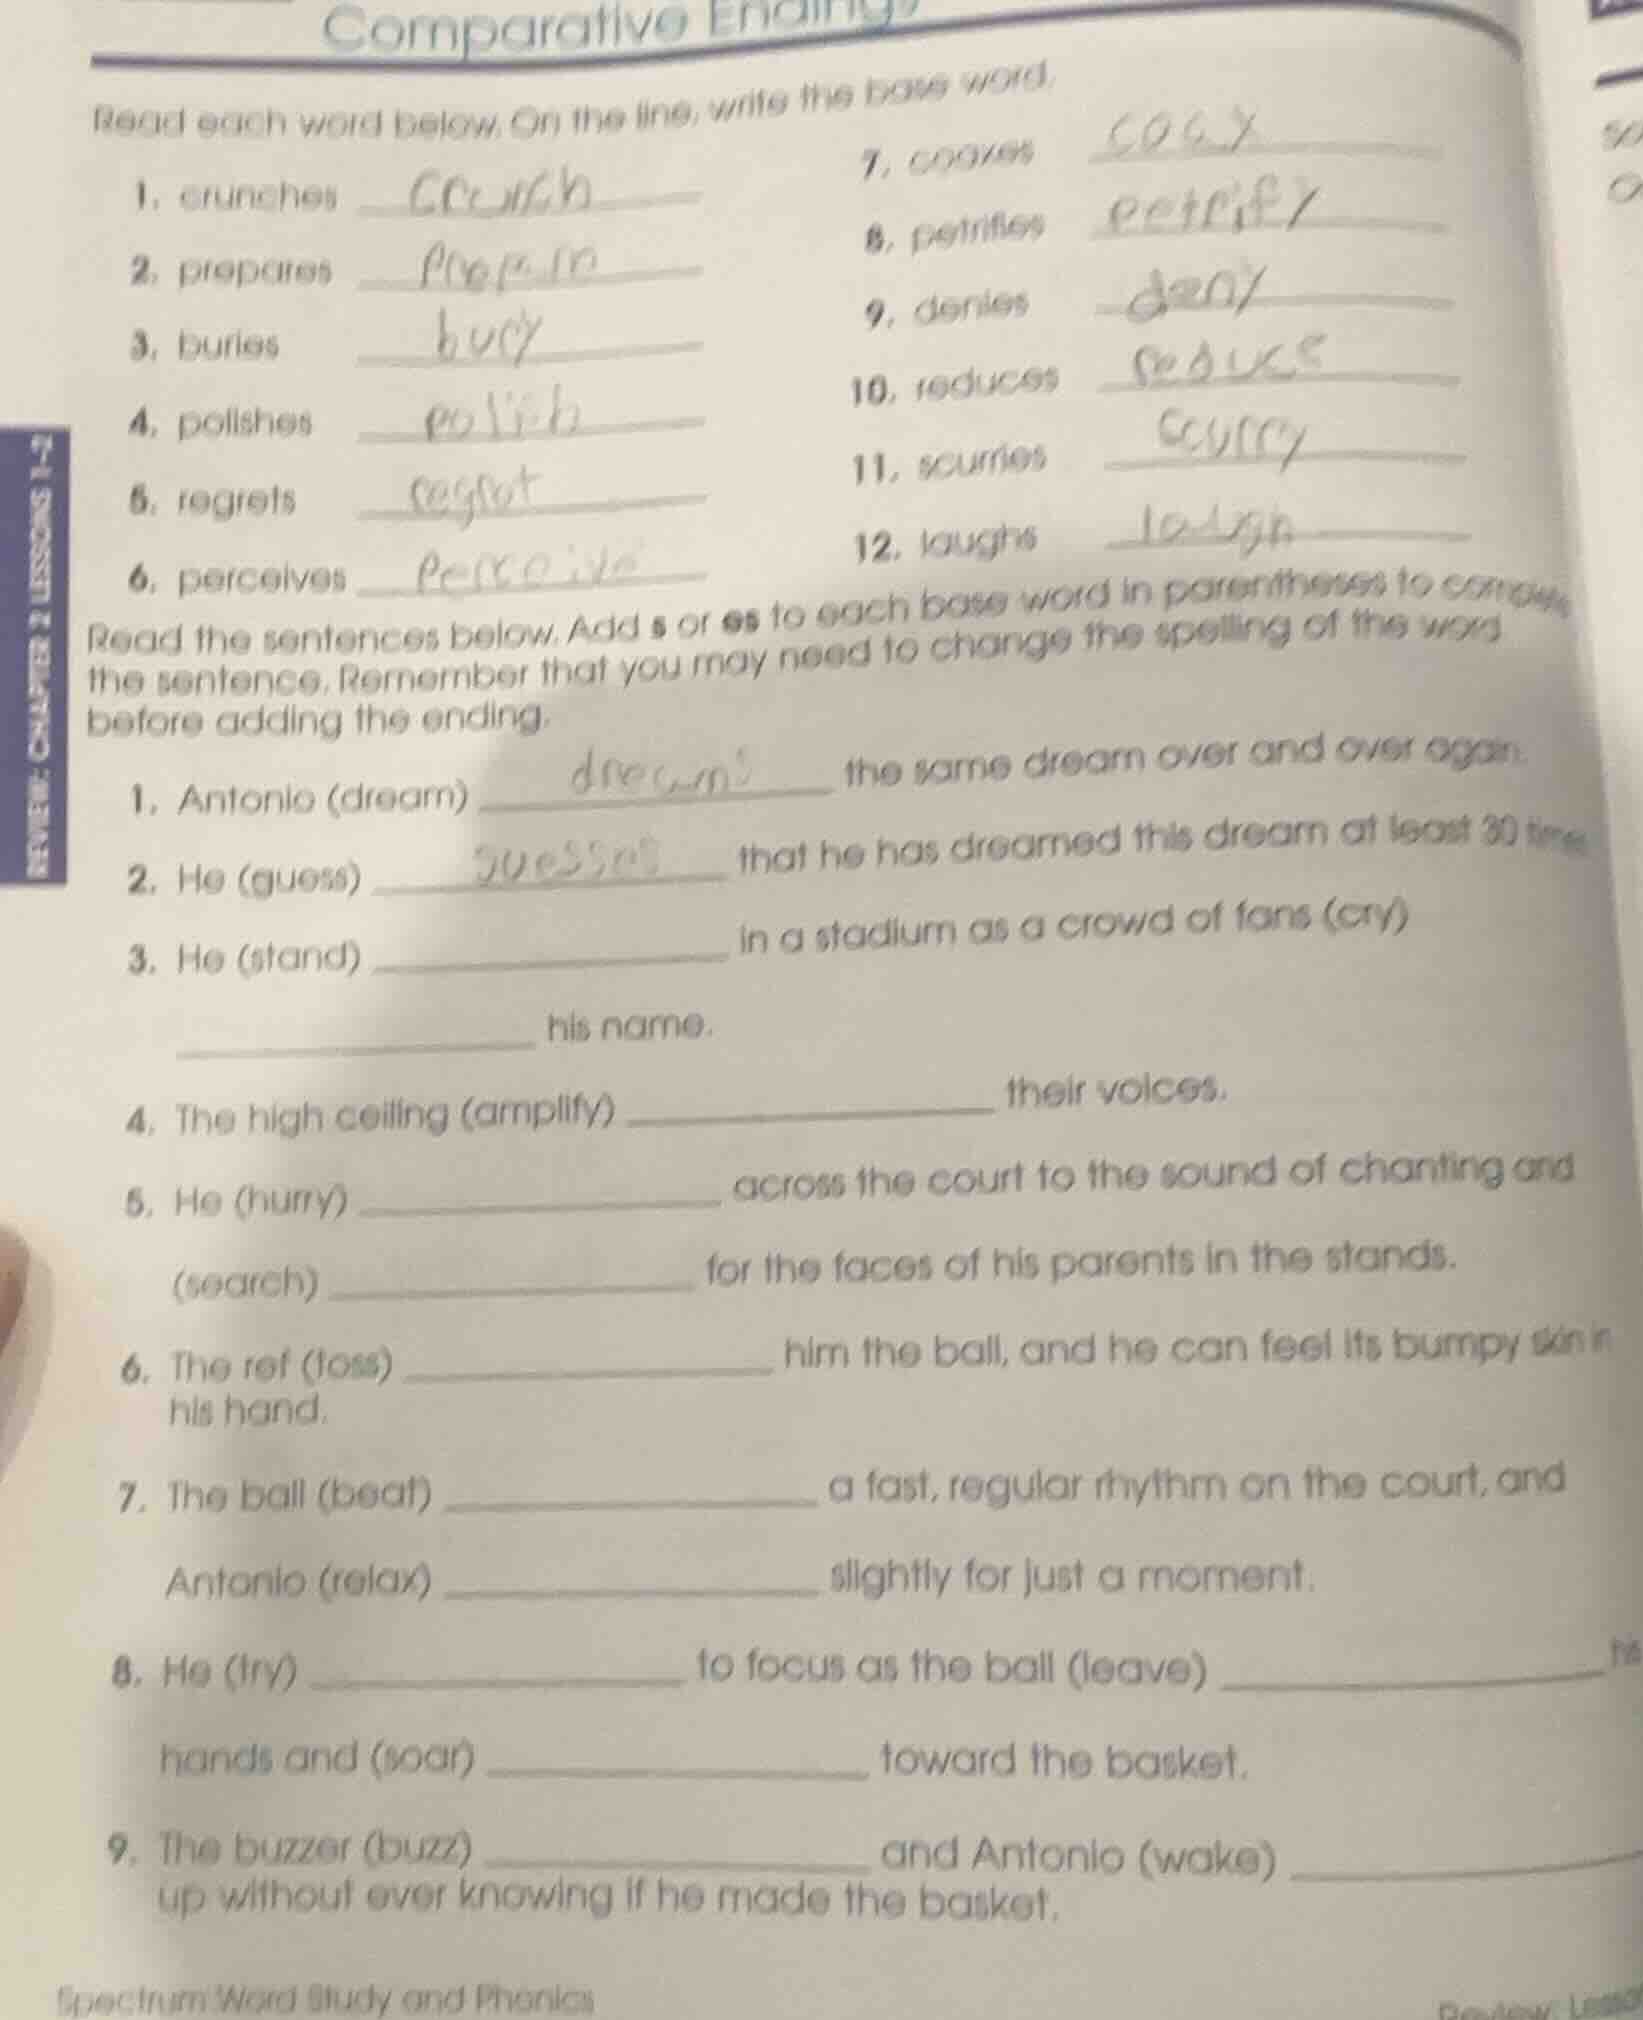 Comparative Endings
Read each word below. On the line, write the base word.
1. crunches crunch
2. prepares
3. buries bury
4. polishes polish
5. regrets regret
6. perceives perceive
7. coaxes coax
8. petrifies petrify
9. denies deny
10. reduces reduce
11. scurries scurry
12. laughs laugh
Read the sentences below. Add s or es to each base word in parentheses to complete
the sentence. Remember that you may need to change the spelling of the word
before adding the ending.
1. Antonio (dream) dreams the same dream over and over again.
2. He (guess) guesses that he has dreamed this dream at least 30 times
3. He (stand) in a stadium as a crowd of fans (cry)
his name.
4. The high ceiling (amplify) their voices.
5. He (hurry) across the court to the sound of chanting and
(search) for the faces of his parents in the stands.
6. The ref (toss) him the ball, and he can feel its bumpy skin in
his hand.
7. The ball (beat) a fast, regular rhythm on the court, and
Antonio (relax) slightly for just a moment.
8. He (try) to focus as the ball (leave) his
hands and (soar) toward the basket.
9. The buzzer (buzz) and Antonio (wake)
up without ever knowing if he made the basket.
REVIEW: CHAPTER 2 LESSONS 1-2
Spectrum Word Study and Phonics
Review: Lesson